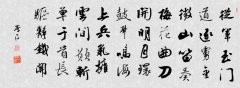 從軍玉門
道逐虜金
微山笛奏
梅花曲刀
開明月環
鼓聲鳴海
上兵氣擁
雲間願斬
單于首長
驅靜鐵關